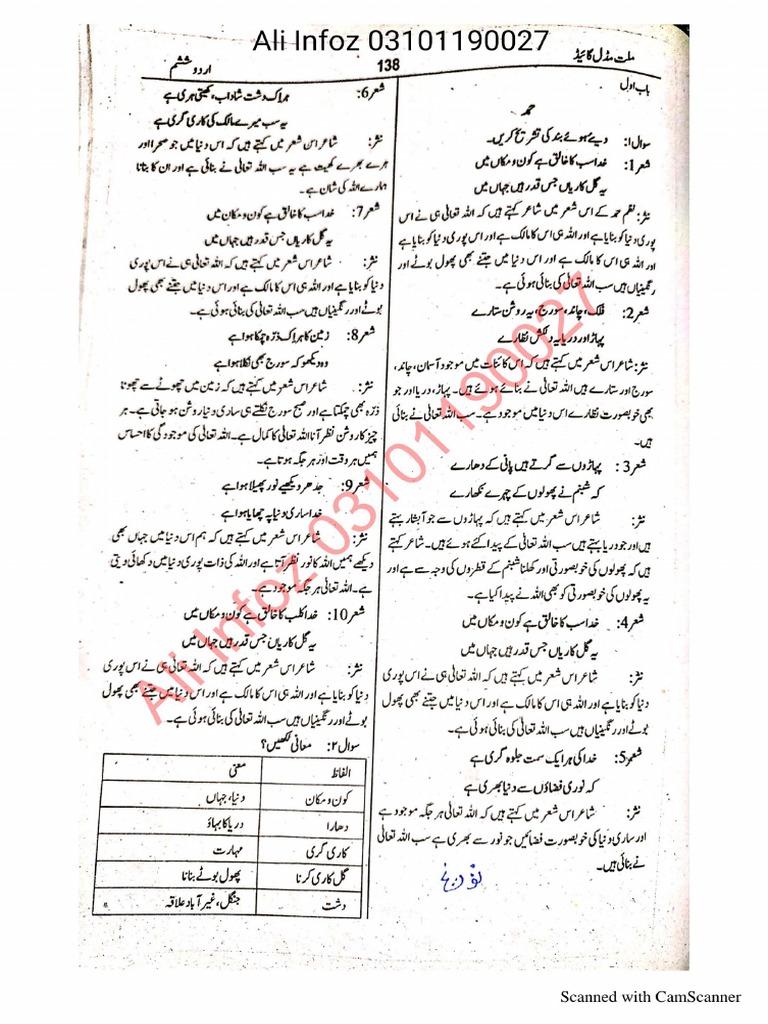 Ali Infoz 03101190027
ملت مڈل گائیڈ
138
اردو ششم
باب اول
حمد
سوال1: دیے ہوئے بند کی تشریح کریں۔
شعر1: خدا سب کا خالق ہے کون و مکاں میں
یہ گل کاریاں جس قدر ہیں جہاں میں
نثر: نظم حمد کے اس شعر میں شاعر کہتے ہیں کہ اللہ تعالیٰ ہی نے اس
پوری دنیا کو بنایا ہے اور اللہ ہی اس کا مالک ہے اور اس پوری دنیا کو بنایا ہے
اور اللہ ہی اس کا مالک ہے اور اس دنیا میں جتنے بھی پھول بوٹے اور
رنگینیاں ہیں سب اللہ تعالیٰ کی بنائی ہوئی ہے۔
شعر2: فلک، چاند، سورج، یہ روشن ستارے
پہاڑ اور دریا یہ دلکش نظارے
نثر: شاعر اس شعر میں کہتے ہیں کہ اس کائنات میں موجود آسمان، چاند،
سورج اور ستارے ہیں اللہ تعالیٰ نے بنائے ہوئے ہیں۔ پہاڑ، دریا اور جو
بھی خوبصورت نظارے اس دنیا میں موجود ہے۔ سب اللہ تعالیٰ نے بنائی
ہیں۔
شعر3: پہاڑوں سے گرتے ہیں پانی کے دھارے
کہ شبنم نے پھولوں کے چہرے نکھارے
نثر: شاعر اس شعر میں کہتے ہیں کہ پہاڑوں سے جو آبشار بہتے
ہیں اور جو دریا بہتے ہیں سب اللہ تعالیٰ کے پیدا کئے ہوئے ہیں۔ شاعر کہتے
ہیں کہ پھولوں کی خوبصورتی اور کھلنا شبنم کے قطروں کی وجہ سے ہے اور
یہ پھولوں کی خوبصورتی کو بھی اللہ نے پیدا کیا ہے۔
شعر4: خدا سب کا خالق ہے کون و مکاں میں
یہ گل کاریاں جس قدر ہیں جہاں میں
نثر: شاعر اس شعر میں کہتے ہیں کہ اللہ تعالیٰ ہی نے اس پوری
دنیا کو بنایا ہے اور اللہ ہی اس کا مالک ہے اور اس دنیا میں جتنے بھی پھول
بوٹے اور رنگینیاں ہیں سب اللہ تعالیٰ کی بنائی ہوئی ہے۔
شعر5: خدا کی ہر ایک سمت جلوہ گری ہے
کہ نوری فضاؤں سے دنیا بھری ہے
نثر: شاعر اس شعر میں کہتے ہیں کہ اللہ تعالیٰ ہر جگہ موجود ہے
اور ساری دنیا کی خوبصورت فضائیں جو نور سے بھری ہے سب اللہ تعالیٰ
نے بنائی ہیں۔
شعر6: ہر اک دشت شاداب، کھیتی ہری ہے
یہ سب میرے مالک کی کاری گری ہے
نثر: شاعر اس شعر میں کہتے ہیں کہ اس دنیا میں جو صحرا اور
ہرے بھرے کھیت ہے یہ سب اللہ تعالیٰ نے بنائی ہے اور ان کا بنانا
ہمارے اللہ کی شان ہے۔
شعر7: خدا سب کا خالق ہے کون و مکان میں
یہ گل کاریاں جس قدر ہیں جہاں میں
نثر: شاعر اس شعر میں کہتے ہیں کہ اللہ تعالیٰ ہی نے اس پوری
دنیا کو بنایا ہے اور اللہ ہی اس کا مالک ہے اور اس دنیا میں جتنے بھی پھول
بوٹے اور رنگینیاں ہیں سب اللہ تعالیٰ کی بنائی ہوئی ہے۔
شعر8: زمین کا ہر اک ذرّہ چمکا ہوا ہے
وہ دیکھو کہ سورج بھی نکلا ہوا ہے
نثر: شاعر اس شعر میں کہتے ہیں کہ زمین میں چھوٹے سے چھوٹا
ذرّہ بھی چمکتا ہے اور صبح سورج نکلتے ہی ساری دنیا روشن ہو جاتی ہے۔ ہر
چیز کا روشن نظر آنا اللہ تعالیٰ کا کمال ہے۔ اللہ تعالیٰ کی موجودگی کا احساس
ہمیں ہر وقت اور ہر جگہ ہوتا ہے۔
شعر9: جدھر دیکھیے نور پھیلا ہوا ہے
خدا ساری دنیا پہ چھایا ہوا ہے
نثر: شاعر اس شعر میں کہتے ہیں کہ ہم اس دنیا میں جہاں بھی
دیکھے ہمیں اللہ کا نور نظر آتا ہے اور اللہ کی ذات پوری دنیا میں دکھائی دیتی
ہے۔ اللہ تعالیٰ ہر جگہ موجود ہے۔
شعر10: خدا کلب کا خالق ہے کون و مکاں میں
یہ گل کاریاں جس قدر ہیں جہاں میں
نثر: شاعر اس شعر میں کہتے ہیں کہ اللہ تعالیٰ ہی نے اس پوری
دنیا کو بنایا ہے اور اللہ ہی اس کا مالک ہے اور اس دنیا میں جتنے بھی پھول
بوٹے اور رنگینیاں ہیں سب اللہ تعالیٰ کی بنائی ہوئی ہے۔
سوال ۲: معانی لکھیں؟
الفاظ معنی
کون و مکان دنیا، جہاں
دھارا دریا کا بہاؤ
کاری گری مہارت
گل کاری کرنا پھول بوٹے بنانا
دشت جنگل، غیر آباد علاقہ
Ali Infoz 03101190027
Scanned with CamScanner